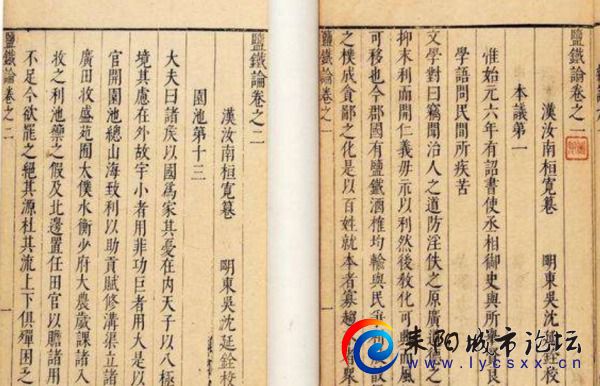 鹽鐵論卷之一
漢汝南桓寬纂 明東吳沈延銓校
本議第一
惟始元六年有詔書使丞相御史與所舉良
文學語問民間所疾苦
文學對曰竊聞治人之道防淫佚之原廣道之
抑末利而開仁義毋示以利然後教化可興而風
可移也今郡國有鹽鐵酒榷均輸與民
之樸成貪鄙之化是以百姓就本者寡趨
鹽鐵論卷之一
一
鹽鐵論卷之二
漢汝南桓寬纂 明東吳沈延銓校
園池第十三
大夫曰諸侯以國為家其憂在内天子以八極
境其慮在外故宇小者用菲功巨者用大是以
官開園池總山海致利以助貢賦修溝渠立諸
廣田牧盛苑囿太僕水衡少府大農歲課諸入
牧之利池籞之假及北邊置任田官以贍諸用
不足今欲罷之絕其源杜其流上下俱殫困乏
鹽鐵論卷之二
一
耒阳城市论坛
www.lycsxx.cn